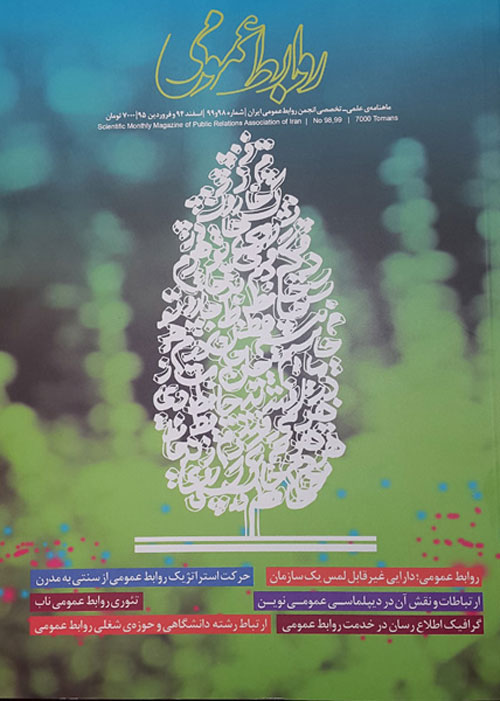 روابط عمومی
ماهنامه‌ی علمی-تخصصی انجمن روابط عمومی ایران | شماره ۹۸و۹۹ | اسفند ۹۴ و فروردین ۹۵ | ۷۰۰۰ تومان
Scientific Monthly Magazine of Public Relations Association of Iran | No 98,99 | 7000 Tomans
روابط عمومی؛ دارایی غیرقابل لمس یک سازمان
حرکت استراتژیک روابط عمومی از سنتی به مدرن
ارتباطات و نقش آن در دیپلماسی عمومی نوین
تئوری روابط عمومی ناب
گرافیک اطلاع رسان در خدمت روابط عمومی
ارتباط رشته دانشگاهی و حوزه‌ی شغلی روابط عمومی